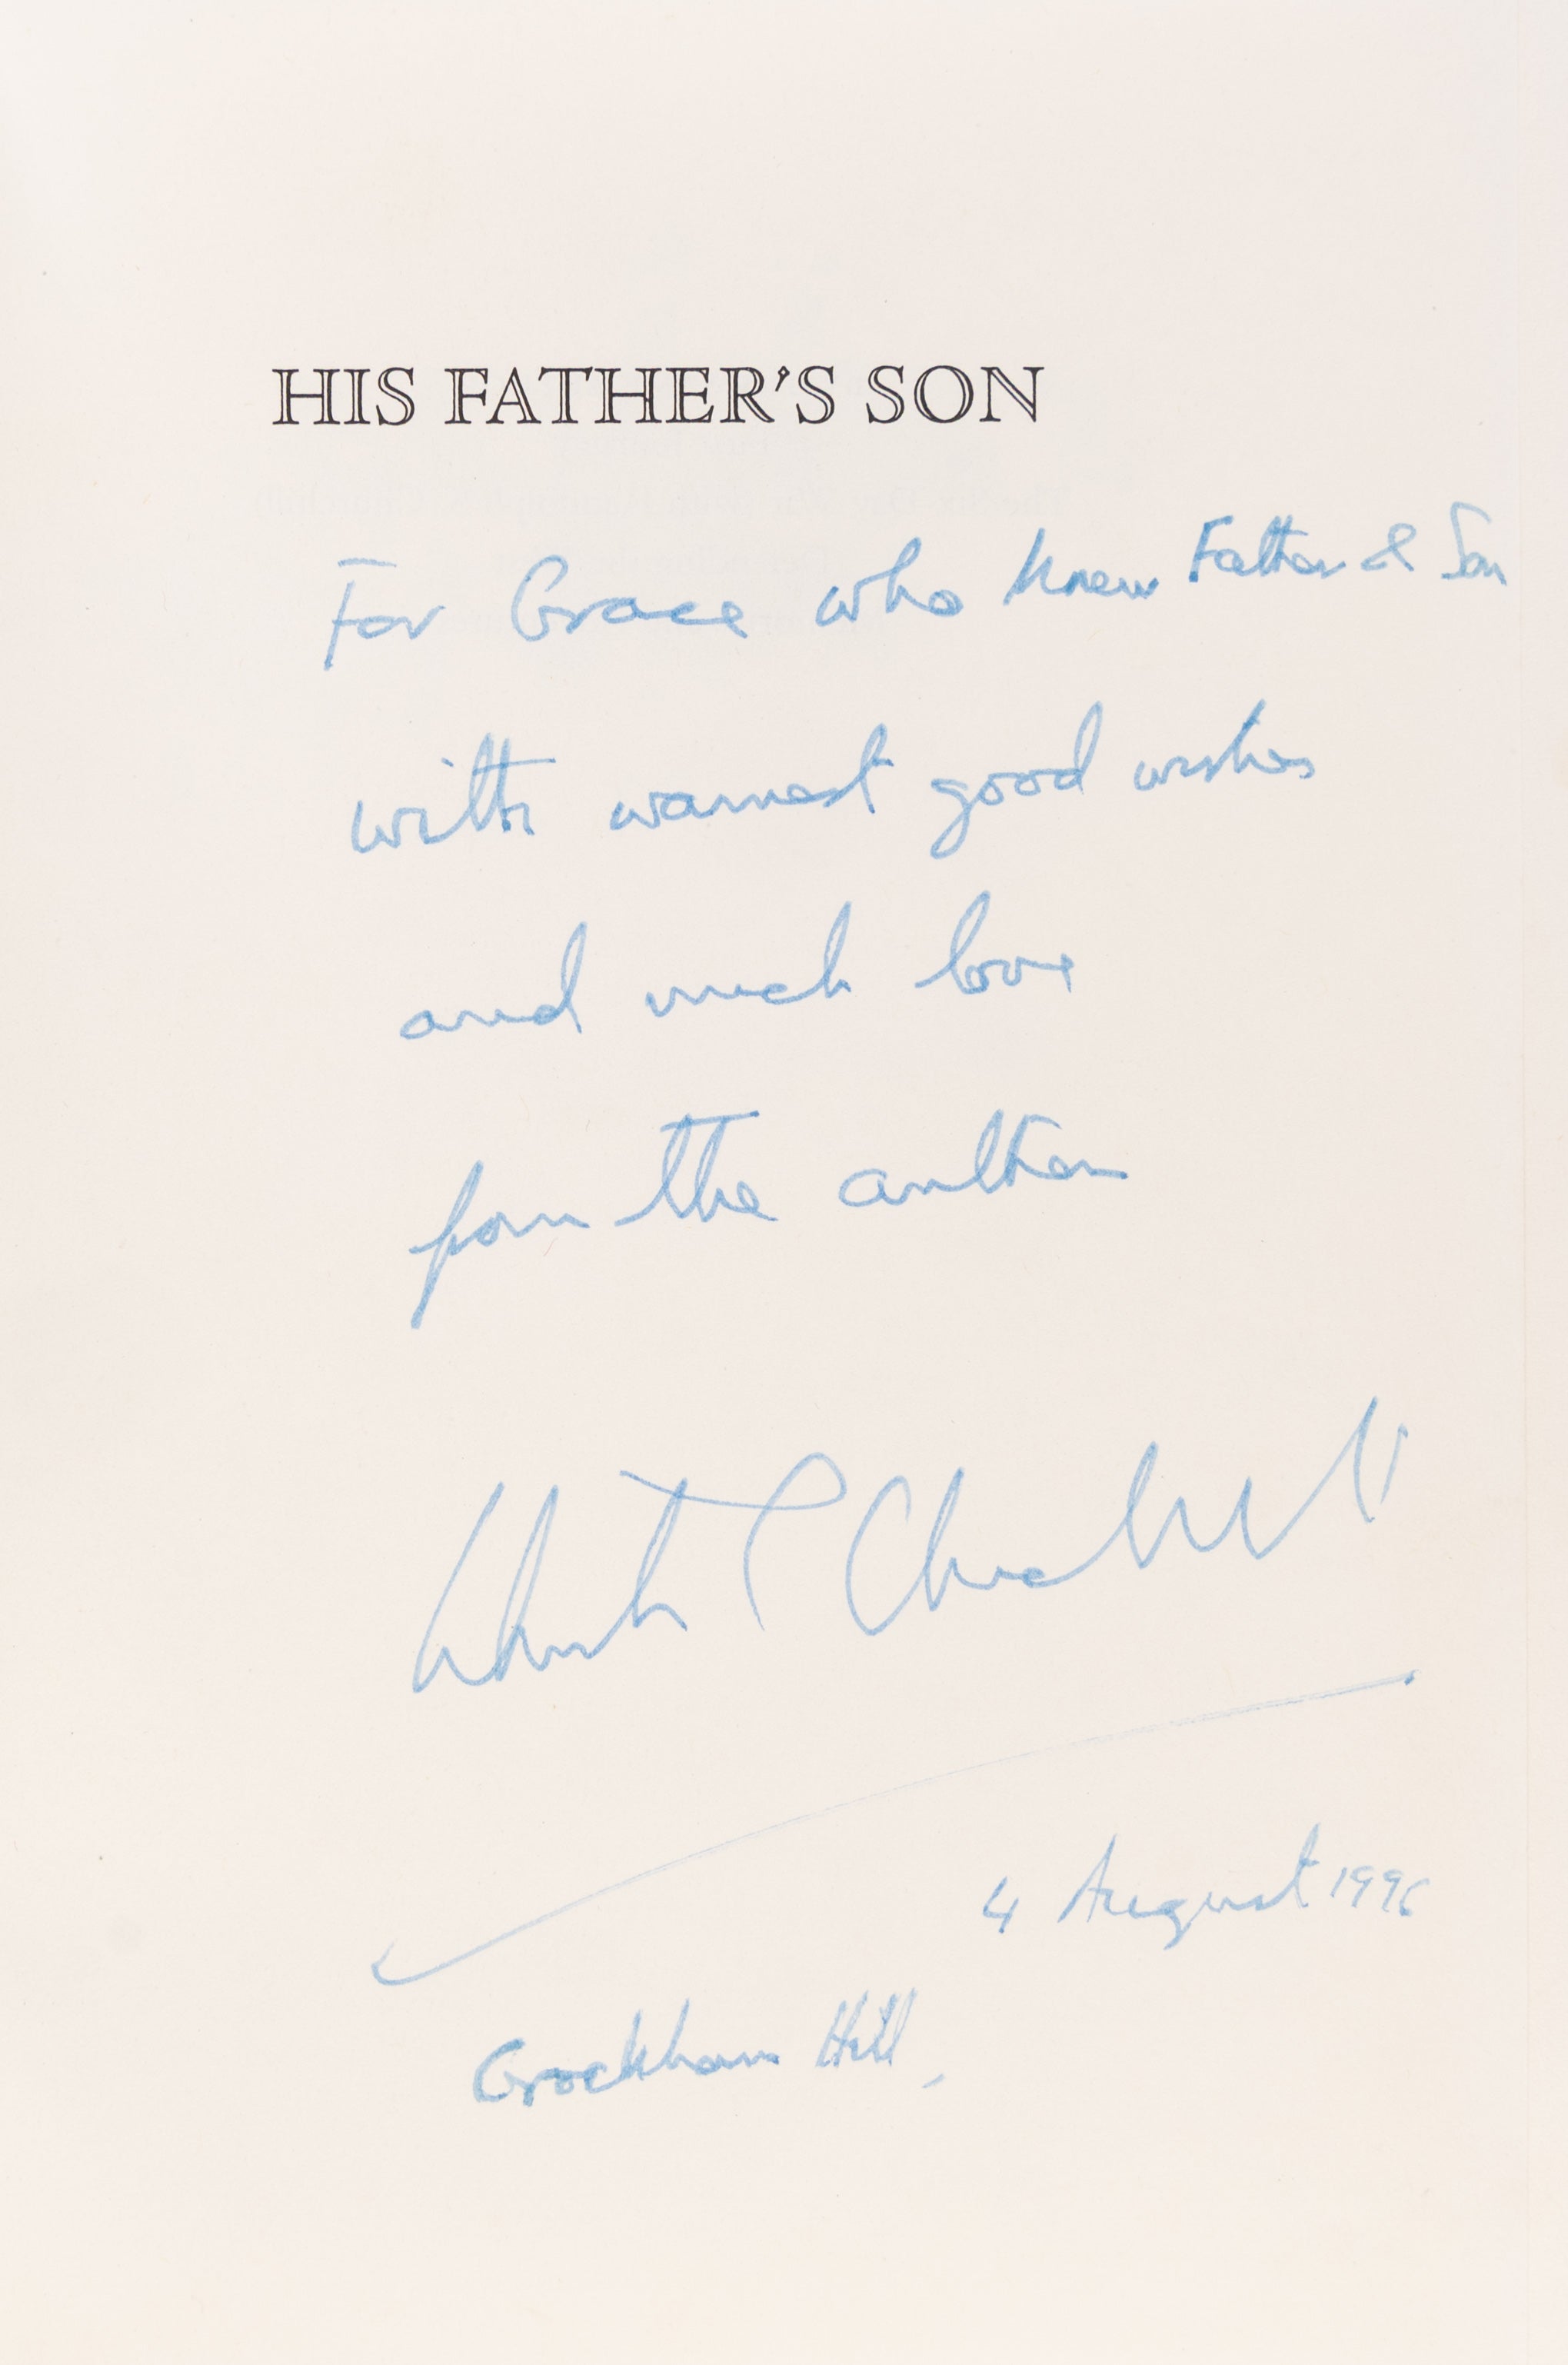 HIS FATHER'S SON
For Grace who knew Father & Son
with warmest good wishes
and much love
from the author
Winston S Churchill
4 August 1996
Crockham Hill,